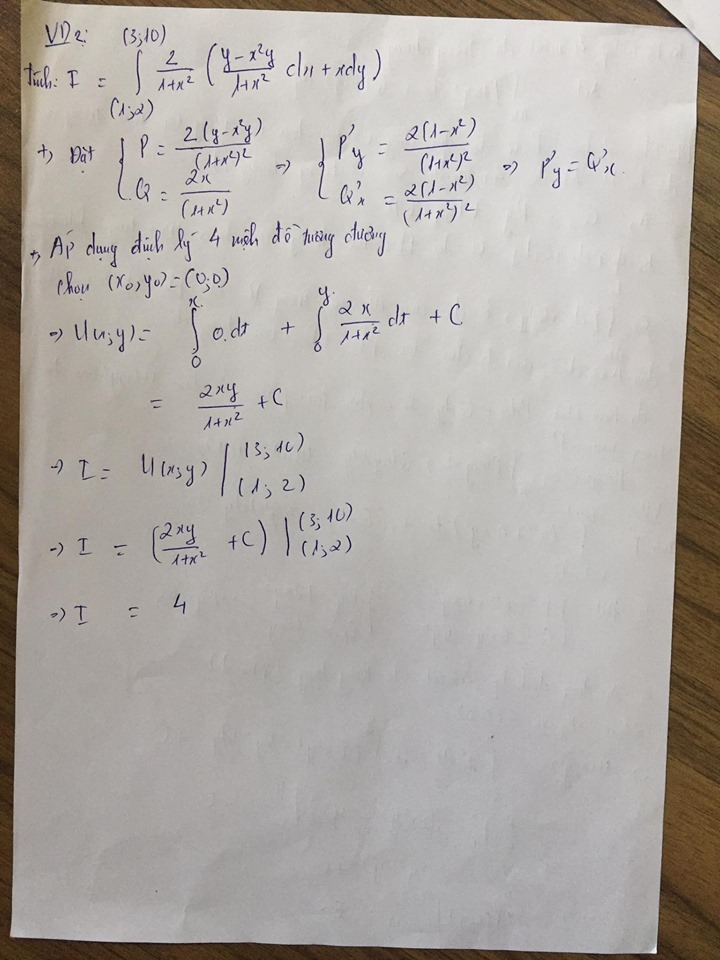 VD2: (3;10)
tính: I = ∫ 2/(1+x²) ( (y-x²y)/(1+x²) dx + xdy )
(1;2)
+, Đặt { P = 2(y-x²y)/(1+x²)² => { P'y = 2(1-x²)/(1+x²)² => P'y = Q'x.
Q = 2x/(1+x²) Q'x = 2(1-x²)/(1+x²)²
+, Áp dụng định lý 4 mệnh đề tương đương
chọn (x0,y0)=(0;0)
=> U(x;y)= ∫₀ˣ 0.dt + ∫₀ʸ 2x/(1+x²) dt + C
= 2xy/(1+x²) + C
=> I = U(x;y) | (3;10)
(1;2)
=> I = (2xy/(1+x²) + C) | (3;10)
(1;2)
=> I = 4